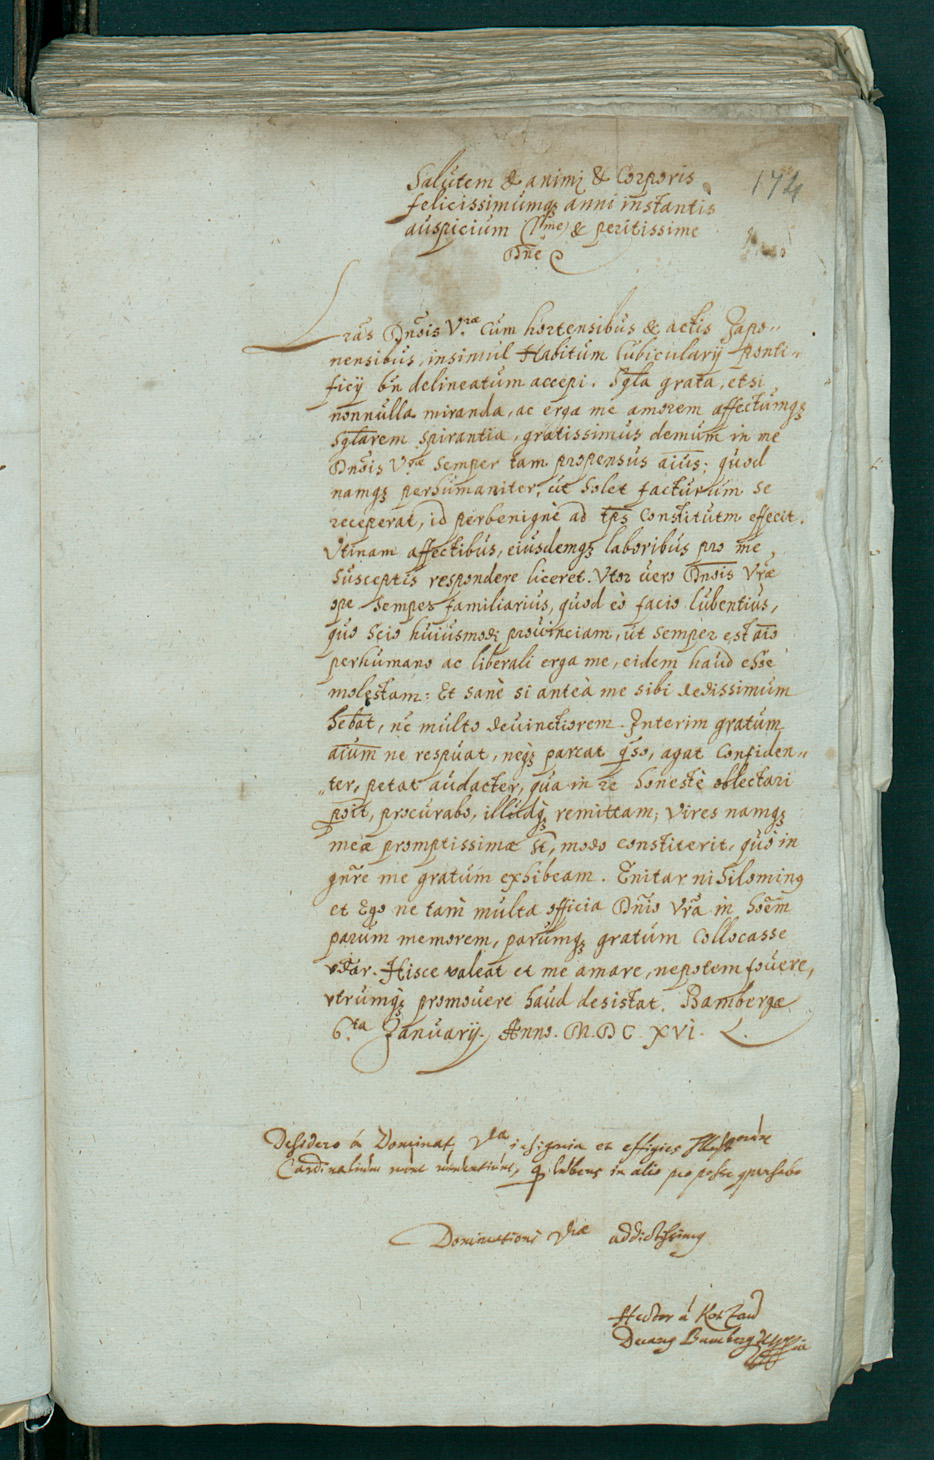 174
Salutem & animi & Corporis
felicissimumq₃ anni instantis
auspicium & peritissime
Dn̄e
Lr̄as Dn̄ois V.ræ cum hortensibus & actis Japo„
nensibus, insimul Habitum Cubicularij Ponti„
ficij bn̄ delineatum accepi. grata, etsi
nonnulla miranda, ac erga me amorem affectumq₃
spirantia, gratissimus demum in me
Dn̄ois V.ræ semper tam propensus ai͞us; quod
namq₃ perhumaniter, ut solet facturum se
receperat, id perbenignè ad tp̄s constitutm effecit.
Vtinam affectibus, eiusdemq₃ laboribus pro me
susceptis respondere liceret. Vtor uero Dn̄ois Vr̄æ
ope semper familiarius, quod eò facio lubentius,
quo scio huiusmodi prouinciam, ut semper est aīo
perhumano ac liberali erga me, eidem haud esse
molestam: Et sanè si anteà me sibi deuictissimum
hēbat, nc̄ multo deuinctiorem. Interim gratum
aīum ne respuat, neq₃ parcat q̄so, agat confiden„
„ter, petat audacter, qua in re honestè oblectari
poīt, procurabo, illudq₃ remittam; vires namq₃
meæ promptissimæ st̄, modo constiterit, quo in
gn̄re me gratum exhibeam. Enitar nihilominq
et Ego ne tam multa officia Dn̄io Vr̄a in hoēm
parum memorem, parumq₃ gratum collocasse
Hisce valeat et me amare, nepotem fouere,
vtrumq₃ promouere haud desistat. Bambergæ
6.ta Januarij. Anno. M.DC.XVI.
Desidero á Dominat. Vra insignia et effigies
Cardinalium nunc uiuentium, lubens in alio pro posse
Dominationi Vræ addictissimq
Hector á Kotzau
Decang Bamberg